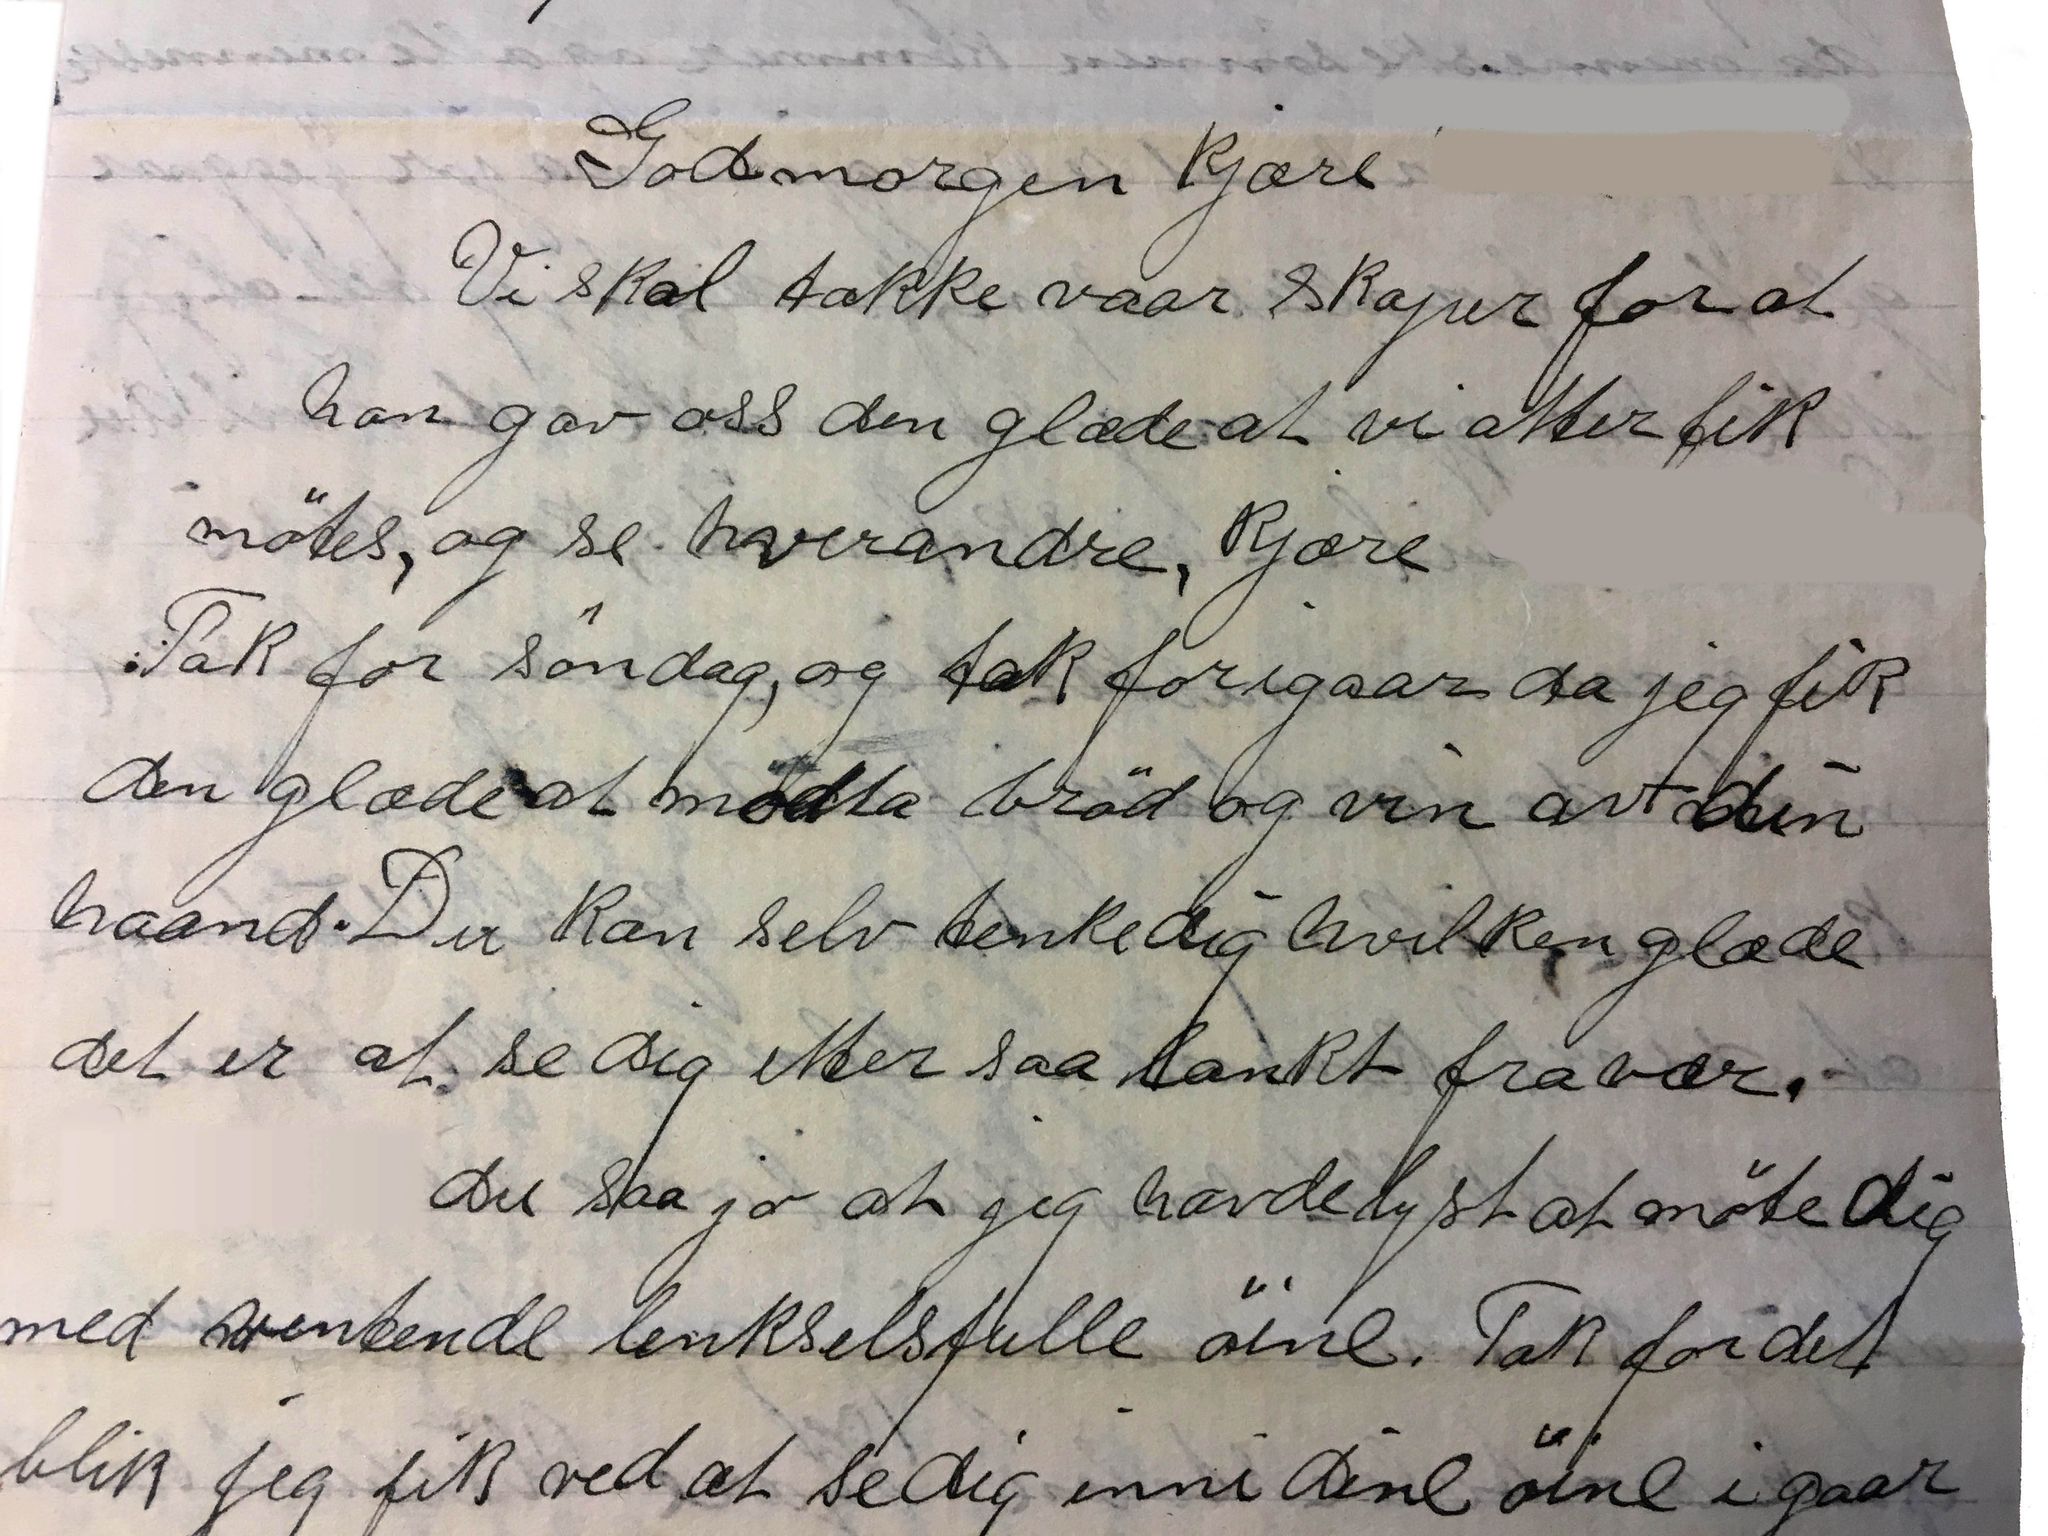 Godmorgen kjære
Vi skal takke vaar skaper for at
han gav oss den glæde at vi atter fik
mötes, og se hverandre, kjære
Tak for söndag, og tak for igaar da jeg fik
den glæde at modta bröd og vin avt din
haand. Du kan selv tenke dig hvilken glæde
det er at se dig etter saa lankt fravær.
du saa jo at jeg havde lyst at möte dig
med ventende lenkselsfulle öine. Tak for det
blik jeg fik ved at se dig inni dine öine i gaar